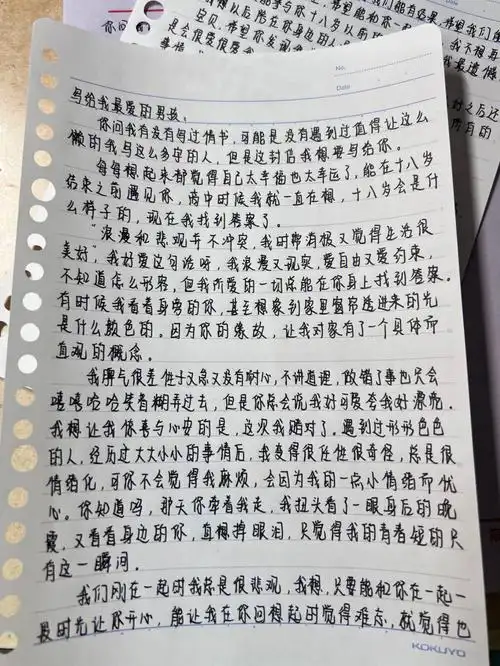 我们能有效果,希望我们
希望能和你一起
事与你十八岁以前
我不想再
No.
Date
写给我最爱的男孩。
你问我有没有写过情书,可能是没有遇到过值得让这么
懒的我写这么多字的人,但是这封信我想要写给你。
每每想起来都觉得自己太幸福也太幸运了,能在十八岁
结束之前遇见你,高中时候我就一直在想,十八岁会是什
么样子的,现在我找到答案了。
“浪漫和悲观并不冲突,我时常消极又觉得生活很
美好”,我好爱这句话呀,我浪漫又现实,爱自由又爱约束,
不知道怎么形容,但我所爱的一切都能在你身上找到答案。
有时候我看着身旁的你,甚至想象到家里窗帘透进来的光
是什么颜色的。因为你的缘故,让我对家有了一个具体而
直观的概念。
我脾气很差性子又急又没有耐心,不讲道理,做错了事也只会
嘻嘻哈哈笑着糊弄过去,但是你总会说我好可爱夸我好漂亮。
我想让我你喜与心安的是,这次我赌对了。遇到过形形色色
的人,经历过大大小小的事情后,我变得很任性很奇怪,总是很
情绪化,可你不会觉得我麻烦,会因为我的一点小情绪而忧
心。你知道吗,那天你牵着我走,我扭头看了一眼身后的晚
霞,又看看身边的你,直想掉眼泪,只觉得我的青春短的只
有这一瞬间。
我们刚在一起时我总是很悲观,我想,只要能和你在一起一
段时光让你开心,能让我在你回想起时觉得难忘,就觉得也
KOKUYO